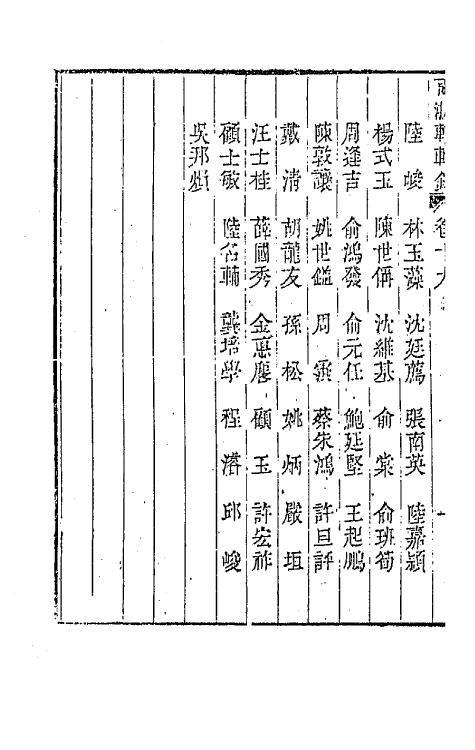 兩浙輶軒錄 卷十九
陸峻 林玉藻 沈廷薦 張南英 陸嘉穎
楊式玉 陳世偁 沈維基 俞棠 俞班筍
周逢吉 俞鴻發 俞元任 鮑廷堅 王起鵬
陳敦讓 姚世鑑 周 蔡朱鴻 許旦評
戴清 胡龍友 孫松 姚炳 嚴垣
汪士桂 薛國秀 金惠 顧玉 許宏祚
顧士敏 陸名輔 龔培學 程濬 邱峻
吳邦